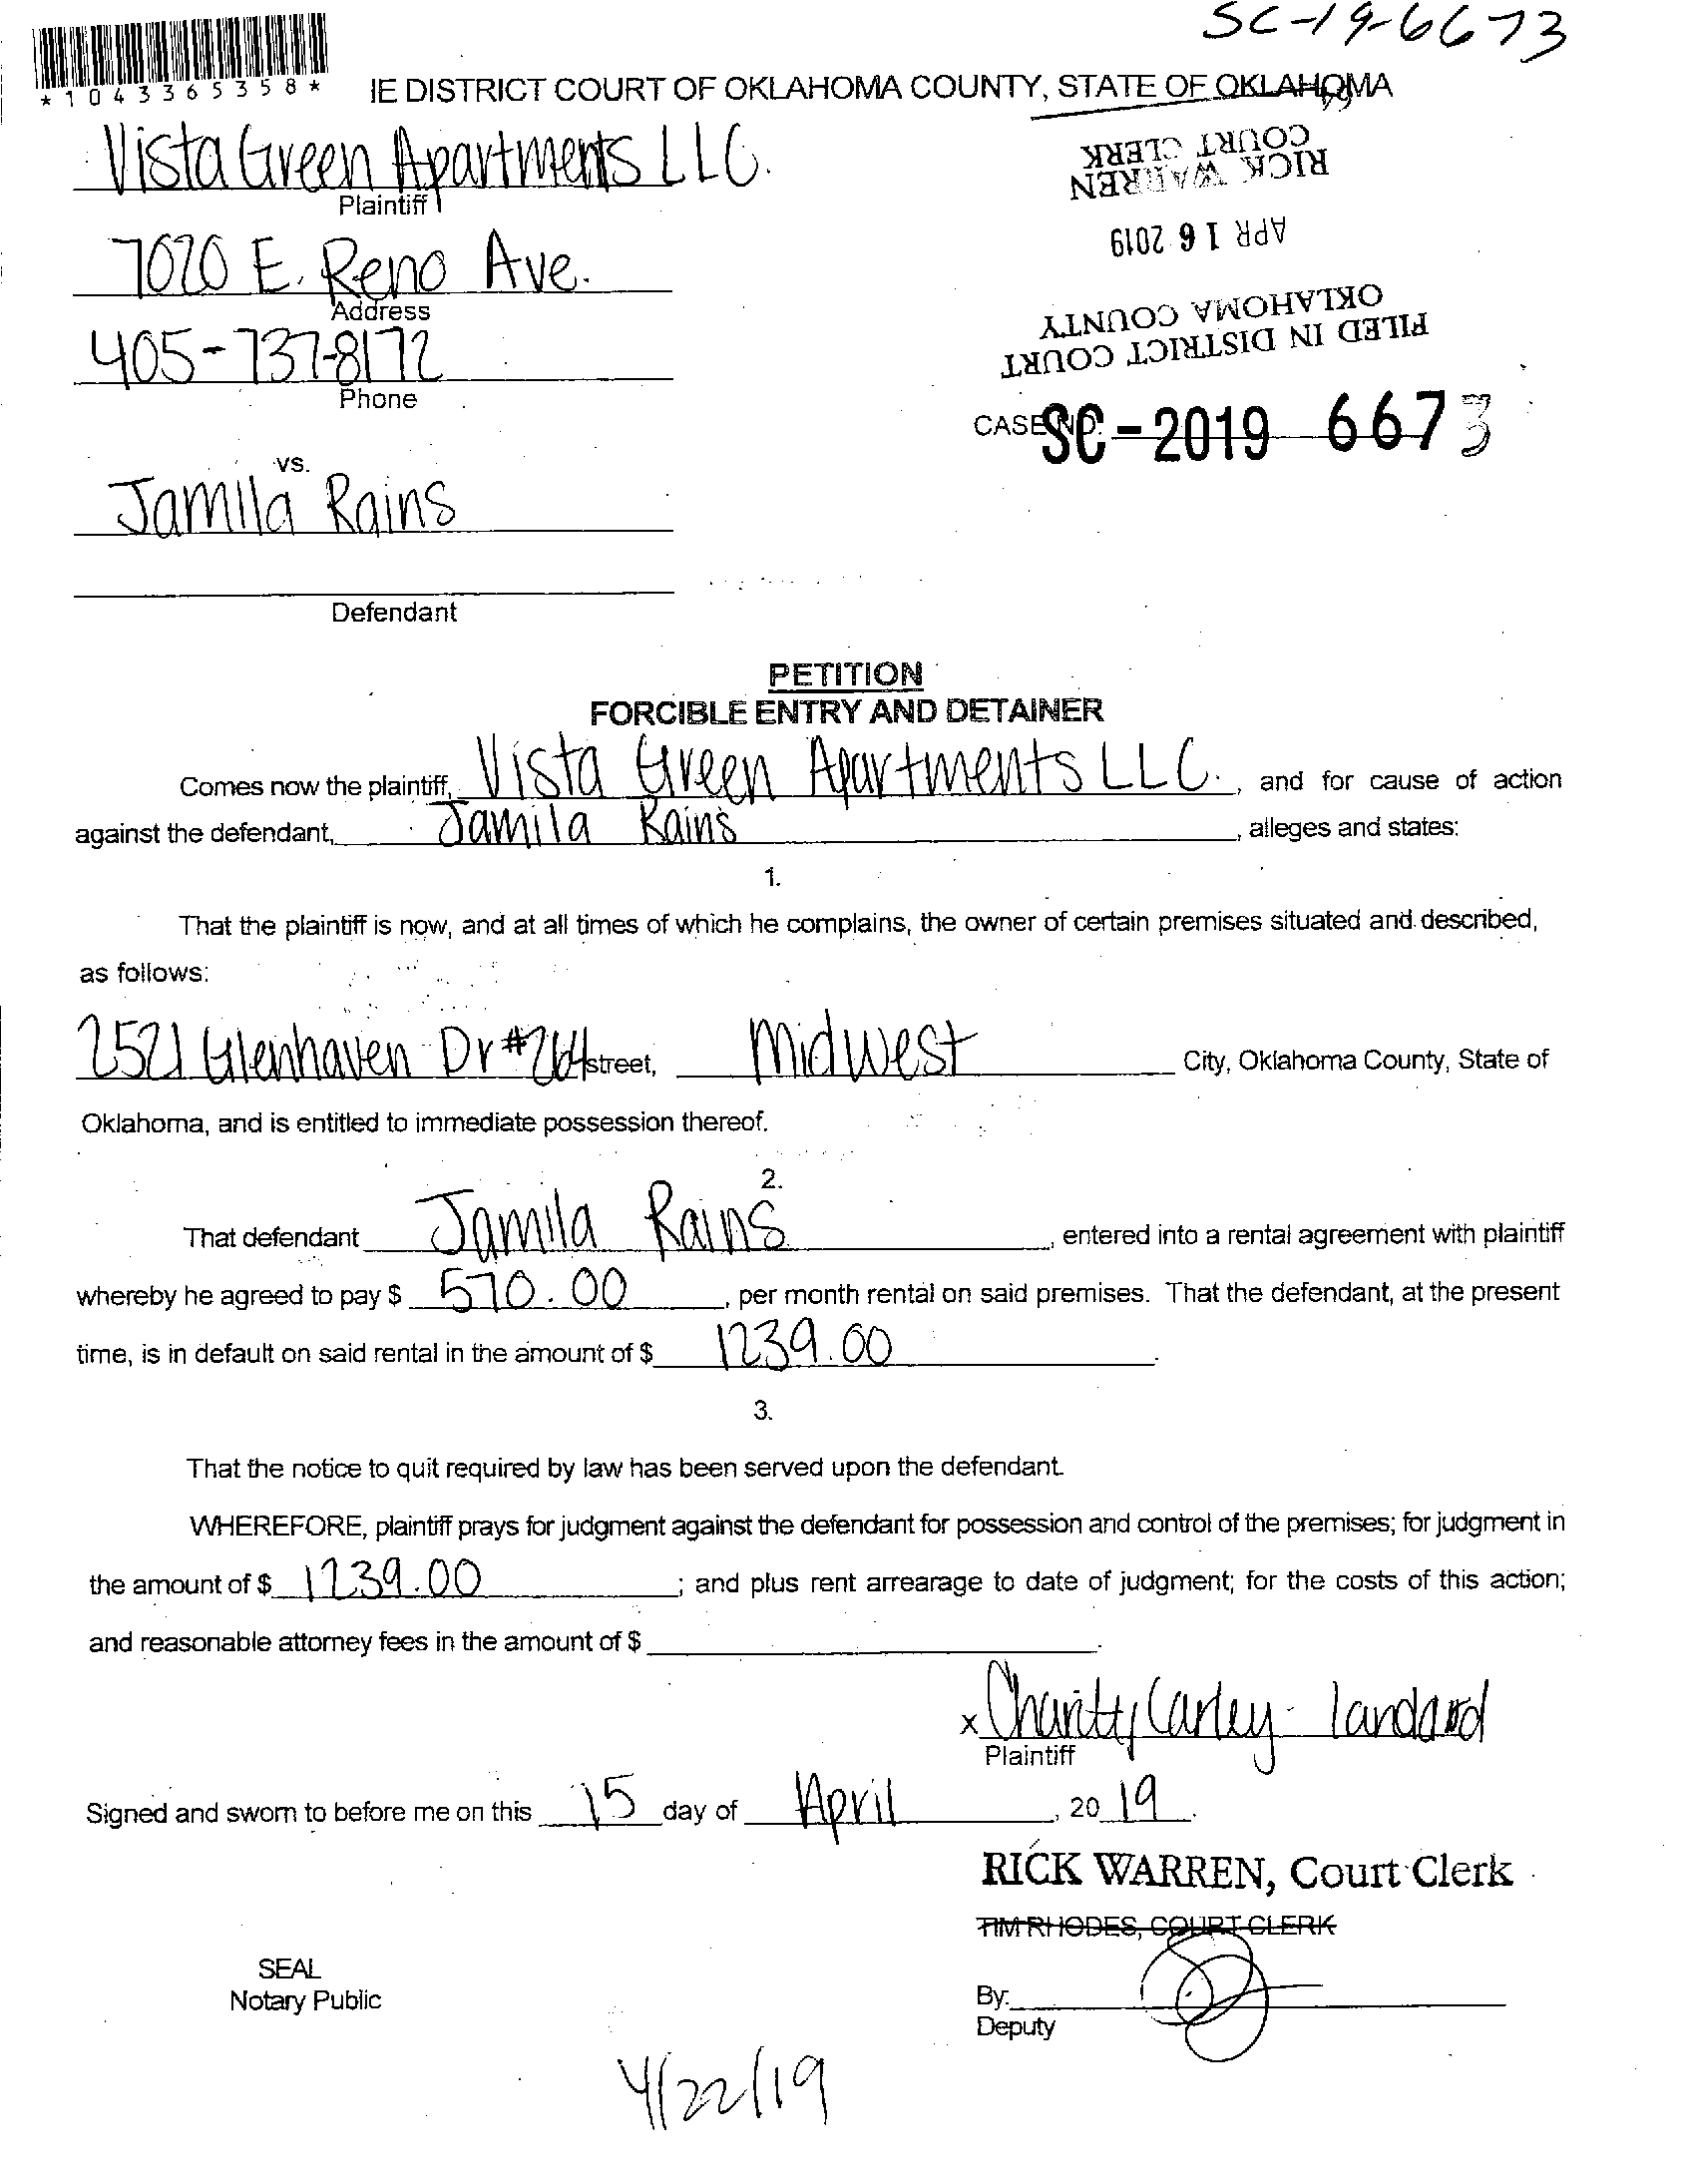 SC-19-6673
*1043365358*
IE DISTRICT COURT OF OKLAHOMA COUNTY, STATE OF OKLAHOMA
Vista Green Apartments LLC.
Plaintiff
7020 E. Reno Ave.
Address
405-737-8172
Phone
FILED IN DISTRICT COURT
OKLAHOMA COUNTY
APR 16 2019
RICK WARREN
COURT CLERK
CASE NO. SC-2019 6673
vs.
Jamila Rains
Defendant
PETITION
FORCIBLE ENTRY AND DETAINER
Comes now the plaintiff, Vista Green Apartments LLC., and for cause of action
against the defendant, Jamila Rains, alleges and states:
1.
That the plaintiff is now, and at all times of which he complains, the owner of certain premises situated and described,
as follows:
2521 Glenhaven Dr #264 street, Midwest City, Oklahoma County, State of
Oklahoma, and is entitled to immediate possession thereof.
2.
That defendant Jamila Rains, entered into a rental agreement with plaintiff
whereby he agreed to pay $ 570.00, per month rental on said premises. That the defendant, at the present
time, is in default on said rental in the amount of $ 1239.00.
3.
That the notice to quit required by law has been served upon the defendant.
WHEREFORE, plaintiff prays for judgment against the defendant for possession and control of the premises; for judgment in
the amount of $ 1239.00; and plus rent arrearage to date of judgment; for the costs of this action;
and reasonable attorney fees in the amount of $ .
x Charity Carley - landlord
Plaintiff
Signed and sworn to before me on this 15 day of April, 20 19.
RICK WARREN, Court Clerk
TIM RHODES, COURT CLERK
SEAL
Notary Public
By:
Deputy
4/22/19